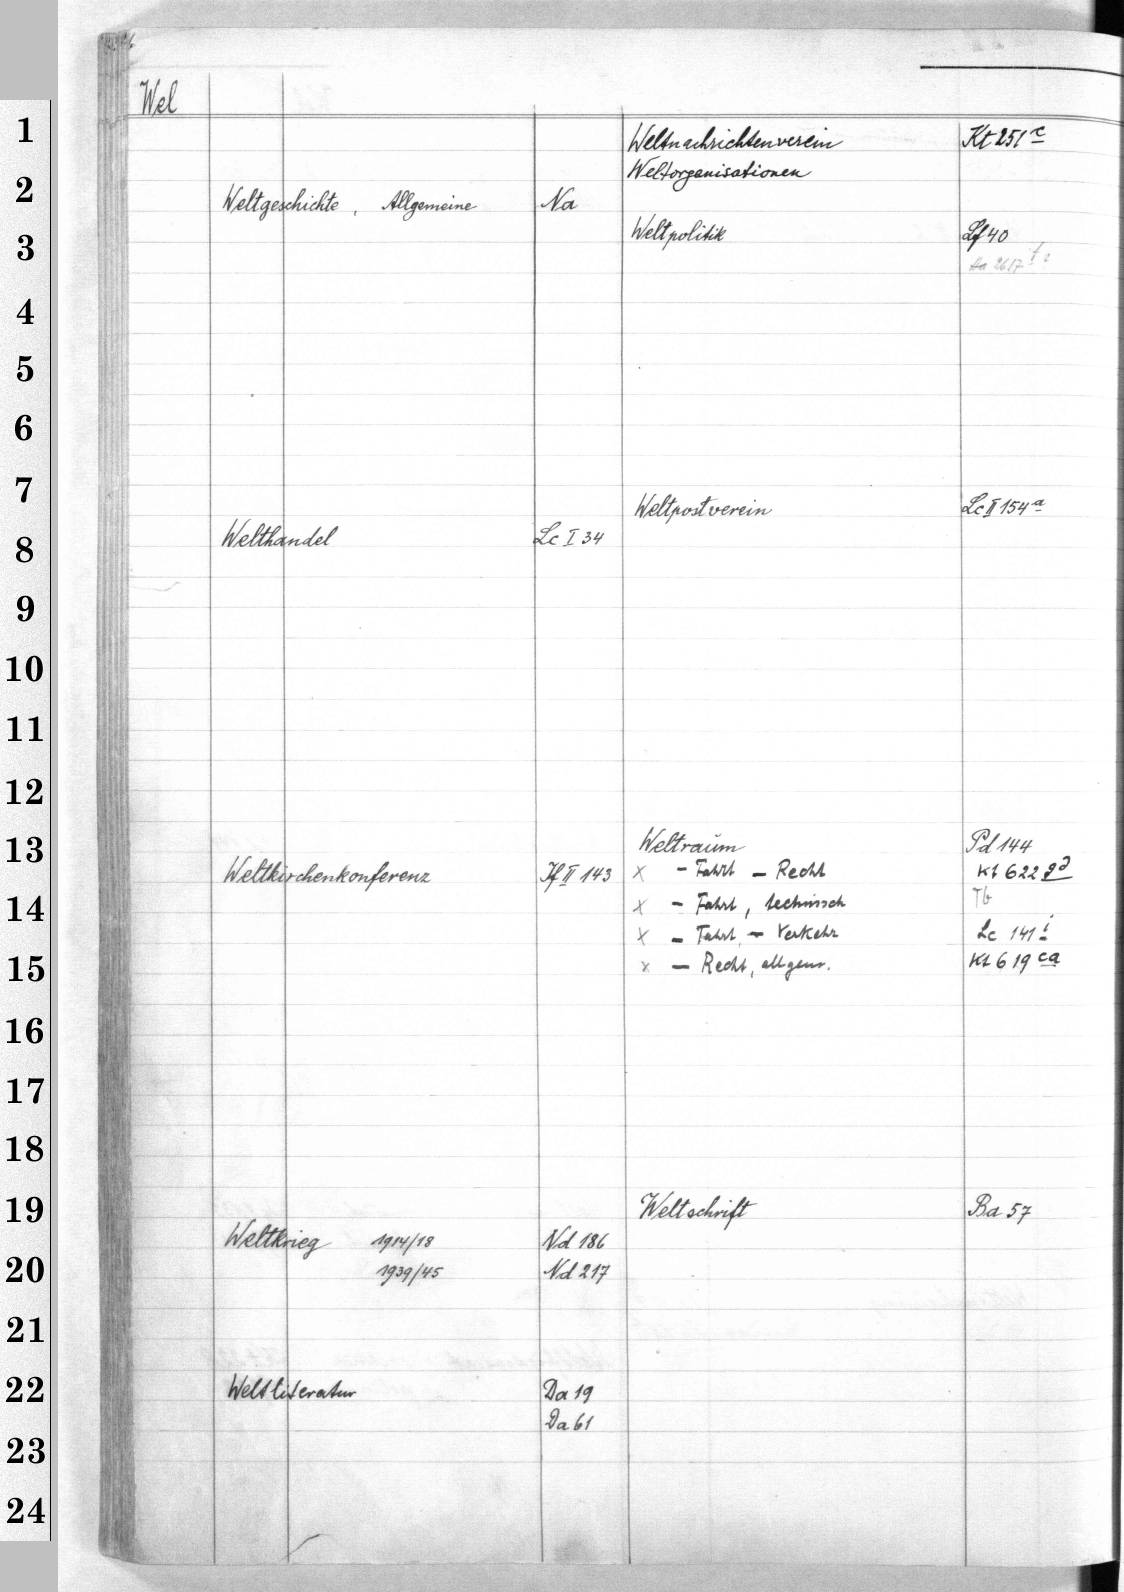 Wel
1
2
3
4
5
6
7
8
9
10
11
12
13
14
15
16
17
18
19
20
21
22
23
24
Weltgeschichte, Allgemeine Na
Welthandel Lc I 34
Weltkirchenkonferenz Jf II 143
Weltkrieg 1914/18 Nd 186
1939/45 Nd 217
Weltliteratur Da 19
Da 61
Weltnachrichtenverein Kt 251 c
Weltorganisationen
Weltpolitik Lf 40
2617
Weltpostverein Lc II 154 a
Weltraum Pd 144
x - Fahrt - Recht Kt 622 gd
x - Fahrt, technisch Tb
x - Fahrt, - Verkehr Lc 141 i
x - Recht, allgem. Kt 619 ca
Weltschrift Ba 57